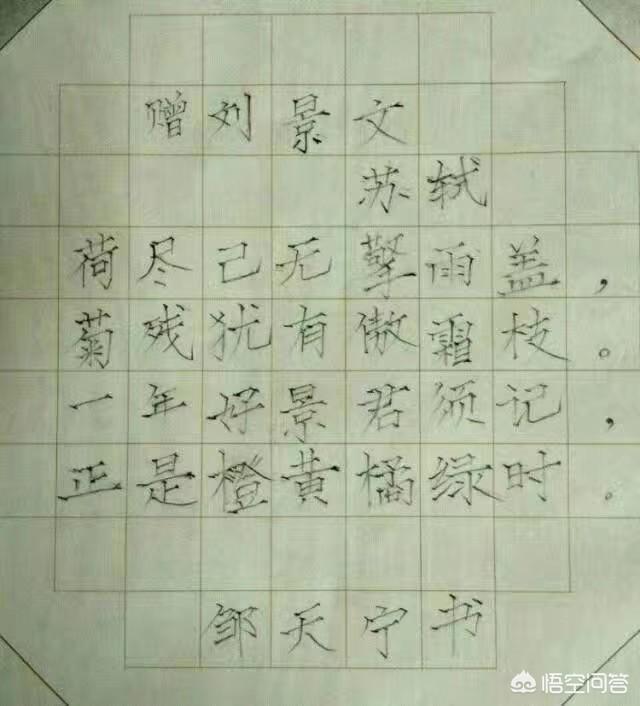 赠刘景文
苏轼
荷尽己无擎雨盖，
菊残犹有傲霜枝。
一年好景君须记，
正是橙黄橘绿时。
邹天宁书
悟空问答